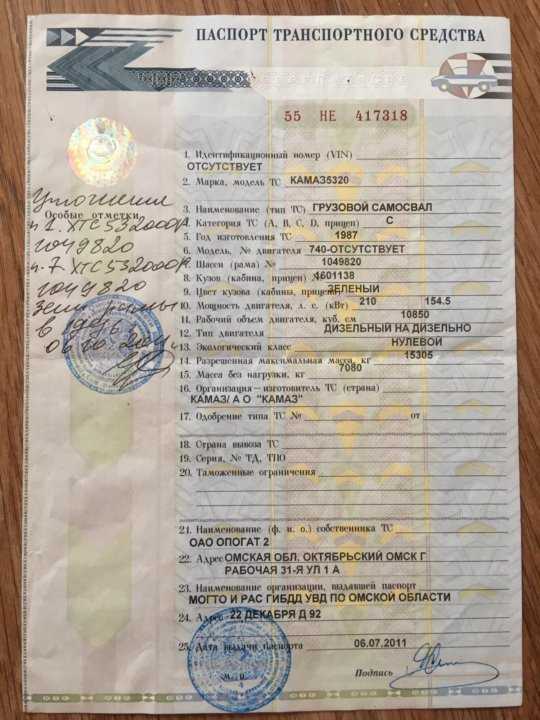 ПАСПОРТ ТРАНСПОРТНОГО СРЕДСТВА
55 НЕ 417318
1. Идентификационный номер (VIN)
ОТСУТСТВУЕТ
2. Марка, модель ТС КАМАЗ5320
3. Наименование (тип ТС) ГРУЗОВОЙ САМОСВАЛ
4. Категория ТС (А, В, С, D, прицеп) С
5. Год изготовления ТС 1987
6. Модель, № двигателя 740-ОТСУТСТВУЕТ
7. Шасси (рама) № 1049820
8. Кузов (кабина, прицеп) 1601138
9. Цвет кузова (кабины, прицепа) ЗЕЛЕНЫЙ
10. Мощность двигателя, л. с. (кВт) 210 154.5
11. Рабочий объем двигателя, куб. см 10850
12. Тип двигателя ДИЗЕЛЬНЫЙ НА ДИЗЕЛЬНО
13. Экологический класс НУЛЕВОЙ
14. Разрешенная максимальная масса, кг 15305
15. Масса без нагрузки, кг 7080
16. Организация—изготовитель ТС (страна)
КАМАЗ/ А О "КАМАЗ"
17. Одобрение типа ТС № от
18. Страна вывоза ТС
19. Серия, № ТД, ТПО
20. Таможенные ограничения
21. Наименование (ф. и. о.) собственника ТС
ОАО ОПОГАТ 2
22. Адрес ОМСКАЯ ОБЛ. ОКТЯБРЬСКИЙ ОМСК Г
РАБОЧАЯ 31-Я УЛ 1 А
23. Наименование организации, выдавшей паспорт
МОГТО И РАС ГИБДД УВД ПО ОМСКОЙ ОБЛАСТИ
24. Адрес 22 ДЕКАБРЯ Д 92
25. Дата выдачи паспорта 06.07.2011
М. П.
Подпись
Особые отметки
п. 1. ХТС532000Р
1049820
п. 7 ХТС532000Р
1049820
рамы